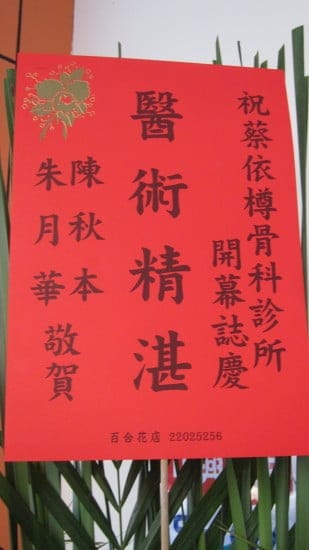 祝蔡依樽骨科診所
開幕誌慶
醫術精湛
陳秋本
朱月華
敬賀
百合花店 22025256